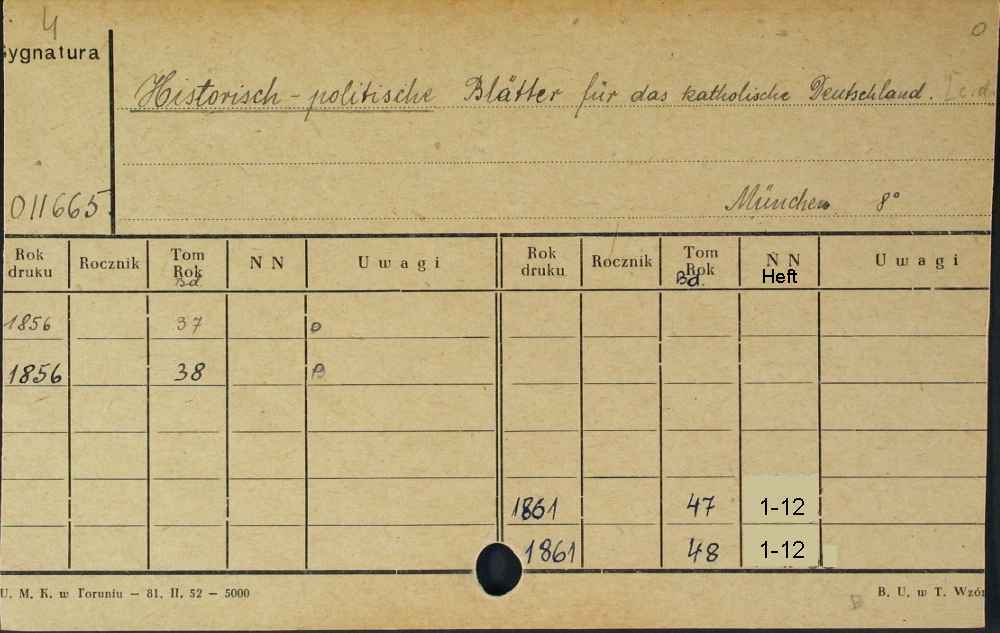 4
0
ygnatura
Historisch - politische Blätter für das katholische Deutschland. [c.d.
011665
München 8°
Rok druku Rocznik Tom Rok Bd. N N U w a g i Rok druku Rocznik Tom Rok Bd. N N Heft U w a g i
1856 37 o
1856 38 B
1861 47 1-12
1861 48 1-12
U. M. K. w Toruniu — 81. II. 52 — 5000
B. U. w T. Wzór
B